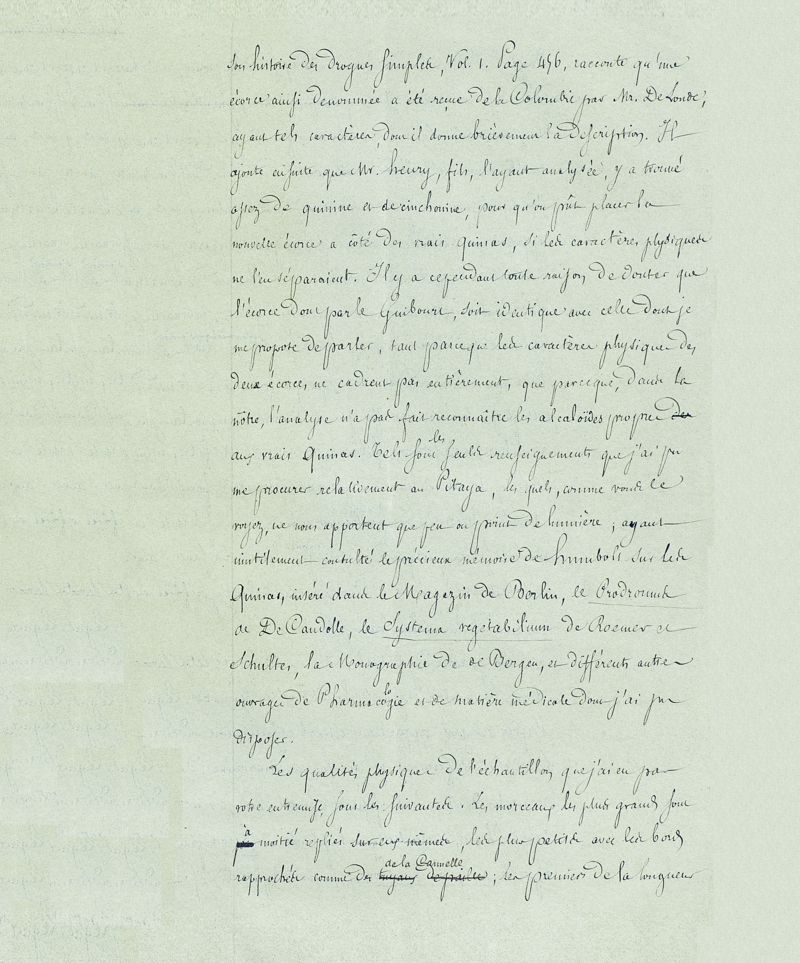 son histoire des drogues simples, Vol. 1. Page 456, raconte qu'une
écorce ainsi denommée a été reçue de la Colombie par Mr. De Londe,
ayant tels caractères, dont il donne brièvement la description. Il
ajoute ensuite que Mr. henry, fils, l'ayant analysée, y a trouvé
assez de quinine et de cinchonine, pour qu'on pût placer la
nouvelle écorce a côté des vrais quinas, si les caractères physiques
ne l'en séparaient. Il y a cependant toute raison de douter que
l'écorce dont parle Guibourt, soit identique avec celle dont je
me propose de parler, tant parceque les caractères physiques des
deux écorces ne cadrent pas entièrement, que parceque, dans la
nôtre, l'analyse n'a pas fait reconnaître les alcaloïdes propres des
aux vrais Quinas. Tels sont les seuls renseignements que j'ai pu
me procurer relativement au Pitaya, les quels, comme vous le
voyez, ne nous apportent que peu ou point de lumière; ayant
inutilement consulté le précieux mémoire de humbolt sur les
Quinas, inséré dans le Magazin de Berlin, le Prodromus
de De Candolle, le Systema vegetabilium de Roemer et
Schultes, la Monographie de de Bergen, et différents autres
ouvrages de Pharmacologie et de matière médicale dont j'ai pu
disposer.
Les qualités physiques de l'échantillon que j'ai eu par
votre entremise, sont les suivantes. Les morceaux les plus grands sont
à moitié repliés sur eux mêmes, les plus petits avec les bords
rapprochés comme des tuyaux de paille de la Cannelle; les premiers de la longueur